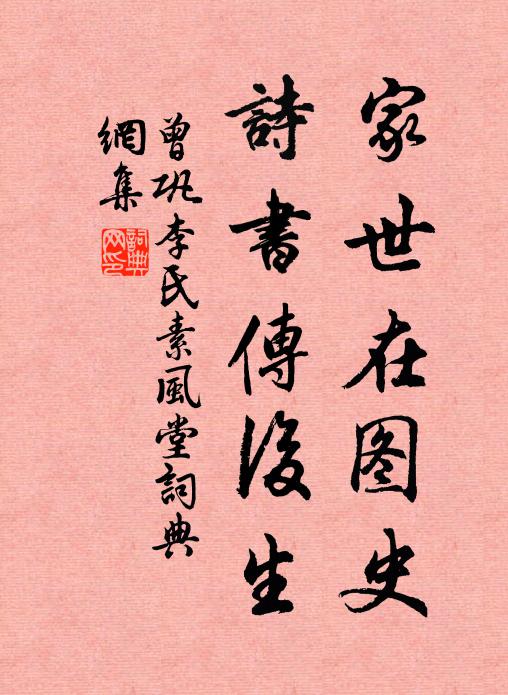 家世在图史
詩書傳後生
曾巩李氏素風堂詞典
網集
詞典網印